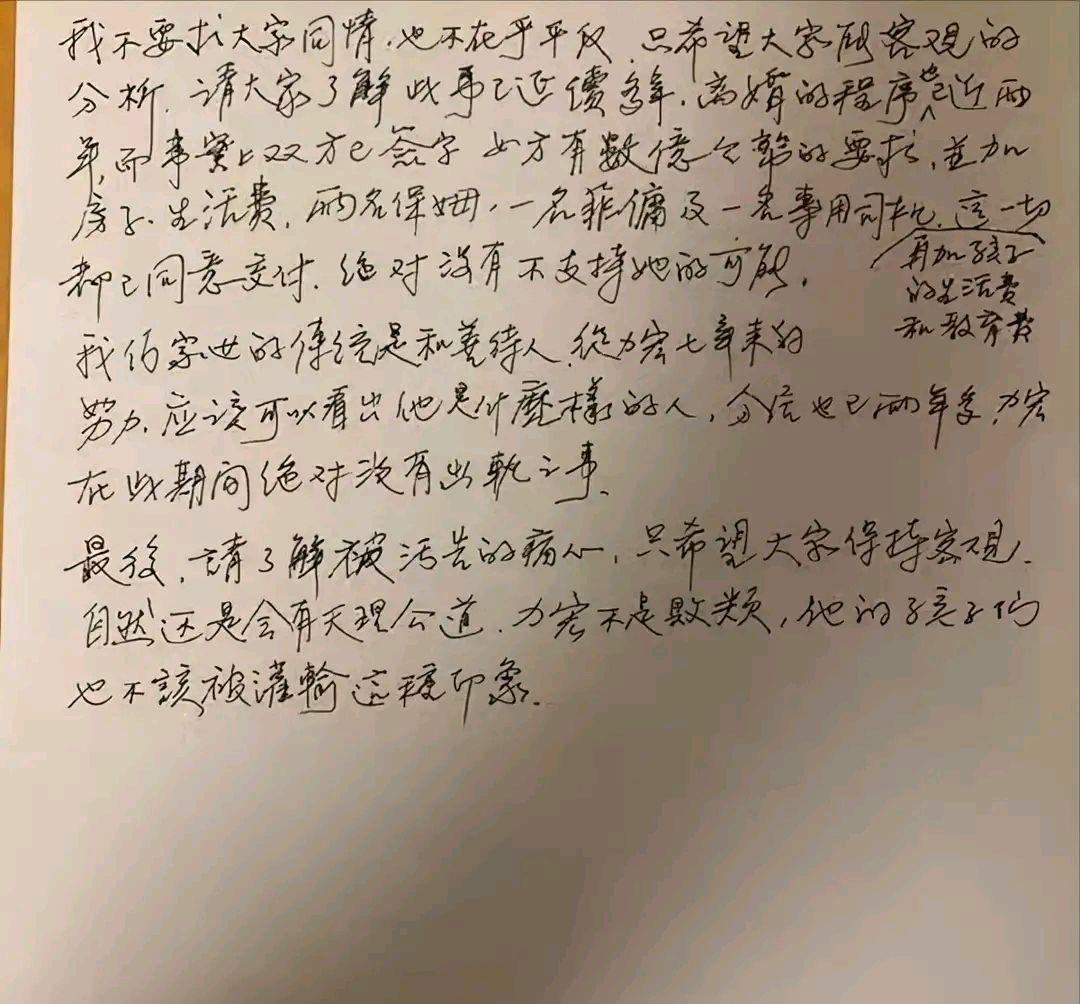 我不要求大家同情,也不在乎平反,只希望大家能客观的
分析,請大家了解此事已延續多年,离婚的程序也已近两
年,而事實上双方已簽字 女方有數億台幣的要求,並加
房子、生活費,兩名保姆,一名菲傭及一名專用司机,這一切
再加孩子
的生活費
和教育費
都已同意交付,绝对没有不支持她的可能。
我们家世的傳統是和善待人,從力宏七年來的
努力,应该可以看出他是什麼樣的人,分居也已兩年多,力宏
在此期间绝对没有出軌之事。
最後,請了解被污告的痛心,只希望大家保持客观,
自然还是会有天理公道,力宏不是败類,他的孩子们
也不該被灌輸這種印象。